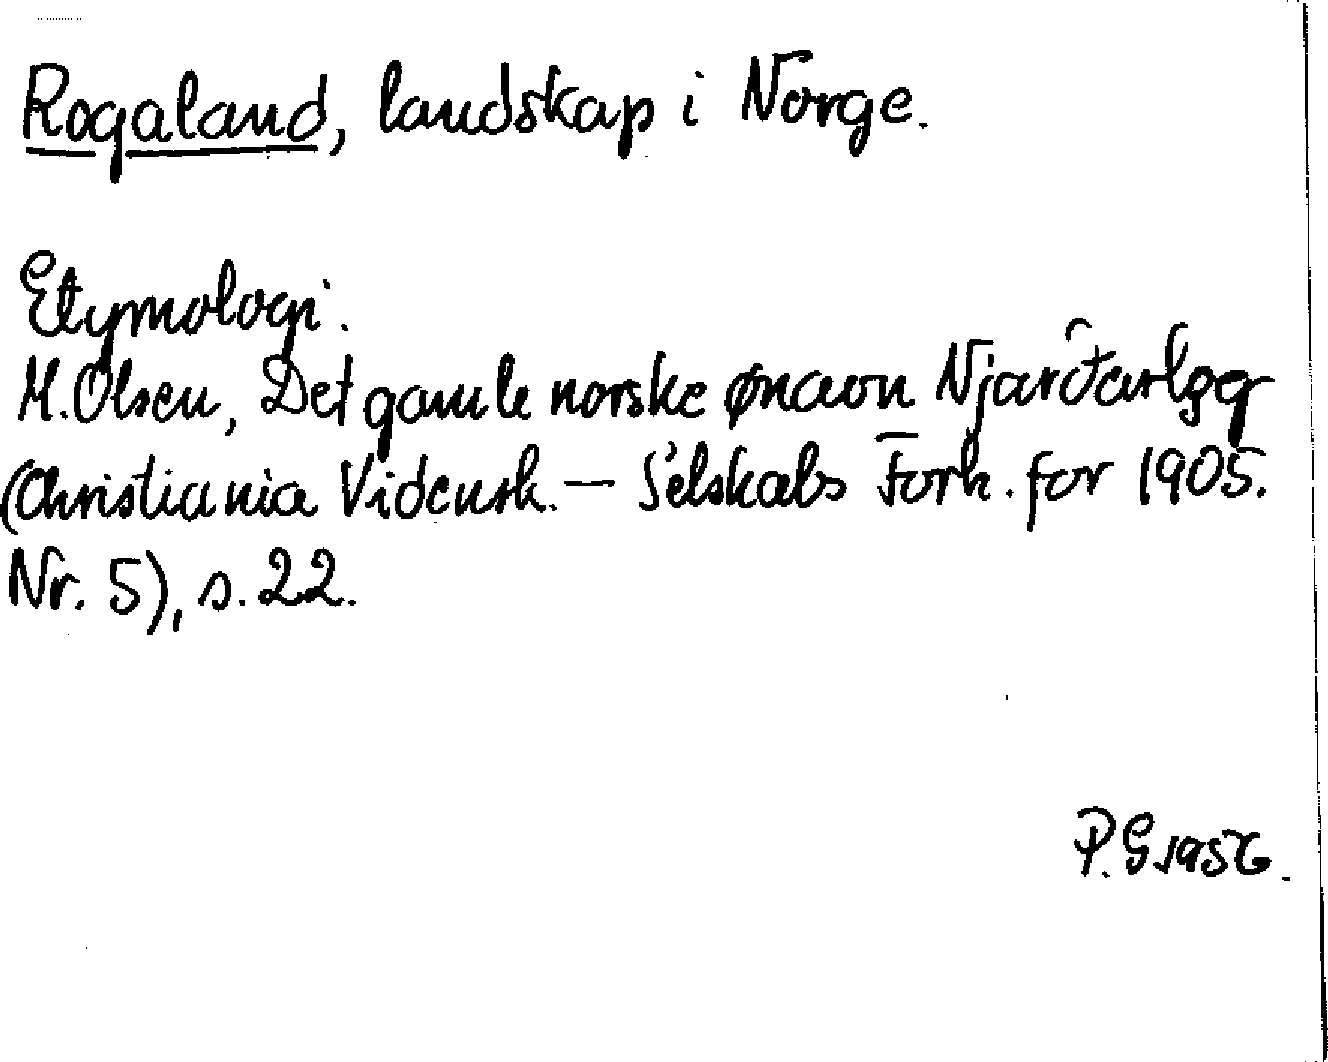 Rogaland, landskap i Norge.
Etymologi.
M. Olsen, Det gamle norske ønavn Njarðarlǫg
(Christiania Vidensk. – Selskabs Forh. for 1905.
Nr. 5), s. 22.
P. G. 1956.